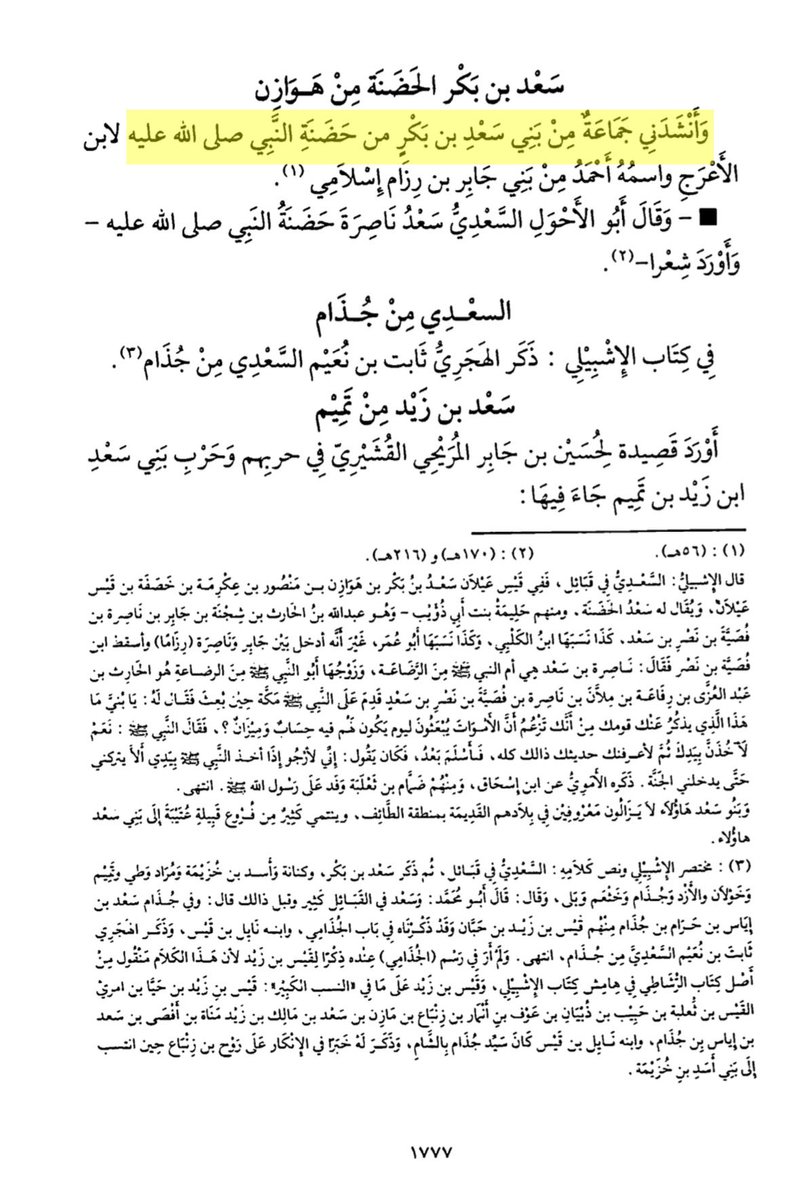 سَعْد بن بَكْر الحَضَنَة مِنْ هَـوَازِن
وَأَنْشَدَنِي جَمَاعَةٌ مِنْ بَنِي سَعْدِ بن بَكْرٍ من حَضَنَةِ النَّبِي صلى الله عليه لابن
الأَعْرَجِ واسمُهُ أَحْمَدُ مِنْ بَنِي جَابِر بن رِزَام إِسْلَامِي (١).
■ – وَقَالَ أَبُو الأَحْوَلِ السَّعْدِيُّ سَعْدُ نَاصِرَةَ حَضَنَةُ النَبِي صلى الله عليه –
وَأَوْرَدَ شِعْرا–(٢).
السعْـدِي مِنْ جُـذَام
فِي كِتَاب الإِشْبِيْلِي : ذَكَر الهَجَرِيُّ ثَابت بن نُعَيْم السَّعْدِي مِنْ جُذَام(٣).
سَعْد بن زَيْد مِنْ تَمِيْم
أَوْرَدَ قَصِيدة لِحُسَيْن بن جَابِر المُرَيْحِي القُشَيْرِيّ فِي حربهم وَحَرْبِ بَنِي سَعْدِ
ابن زَيْد بن تَمِيم جَاءَ فِيهَا :
(١) : (٥٦هـ). (٢) : (١٧٠هـ) و (٢١٦هـ).
قال الإشبيليُّ: السَّعْدِيُّ فِي قَبَائِل، فَفِي قَيْسِ عَيْلَان سَعْدُ بنُ بَكْر بن هَوَازِن بـن مَنْصُور بن عِكْرِمَة بن خَصَفَة بن قَيْس
عَيْلاَن، وَيُقَال له سَعْدُ الحَضَنَة، ومنهم حَلِيمَةُ بنت أَبِي ذُؤَيْب – وَهُو عبدالله بنُ الحَارث بن شِجْنَة بن جَابِر بن نَاصِرة بن
فُصَيَّةَ بن نَصْر بن سَعْد، كَذَا نَسَبَهَا ابنُ الكَلْبِي، وَكَذَا نَسَبَهَا أَبُو عُمَر، غَيْرَ أَنَّه أدخل بَيْن جَابِر وَنَاصِرَة (رِزَامًا) وأسقط ابن
فُصَيَّة بن نَصْر فَقَالَ: نَـاصرة بن سَعْد هِي أم النبي ﷺ مِنَ الرَّضَاعَـة، وَزَوْجُهَا أَبُو النَّبِي ﷺ مِنَ الرضاعةِ هُو الحَارِث بن
عَبد العُزَّى بن رِفَاعَة بن مِلاَّنَ بن نَاصِرة بن فُصَيَّةَ بن نَصْرِ بن سَعْدٍ قَدِمَ عَلَى النَّبِي ﷺ مَكَّة حِيْن بُعِثَ فَقَـال لَهُ: يَا بُنَيَّ مَا
هَذَا الَّذِي يذكُرُ عَنْك قومك مِنْ أَنَّك تَزْعُمُ أَنَّ الأَمْوَاتَ يُبْعَثُونَ ليوم يكُون لَهُم فيه حِسَابٌ وَمِيْزَانٌ ؟، فَقَالَ النَّبِي ﷺ : نَعَمْ
لآخُذَنَّ بِيَدِكَ ثُمَّ لأعرفنك حديثك ذالك كله، فَـأَسْلَمَ بَعْدُ، فَكَان يَقُول: إِنِّي لأَرْجُو إِذَا أخذ النَّبِي ﷺ بِيَدِي أَلاَّ يتركني
حَتَّى يدخلني الجَنَّة. ذَكَره الأُمَوِيُّ عن ابن إِسْحَاق، وَمِنْهُمْ ضَمَام بن ثَعْلَبَة وَفَد عَلَى رَسُول الله ﷺ. انتهى.
وَبَنُو سَعْد هَاؤُلاَءِ لاَ يَـزَالُون مَعْرُوفين في بِلاَدهم القَدِيمَة بمنطقة الطَّائِف، وينتمي كَثِيرٌ مِن فُرُوع قَبِيلةِ عُتَيْبَةَ إِلَى بَنِي سَعْد
هاؤُلاء.
(٣) : مختصر الإِشْبِيْلي ونص كَلَامِهِ : السَّعْدِيُّ فِي قبَائل، ثُم ذَكَر سَعْد بن بَكْر، وكنانة وَأسد بن خُزَيْمَة وَمُرَاد وَطي وتَمِيْم
وَخَوْلاَن والأَزْد وَجُذَام وَخَثْعَم وَبَلى، وَقَالَ: قَالَ أَبُو مُحَمَّد: وَسَعْد في القَبَائِل كَثِير وقبل ذالك قال: وفي جُذَام سَعْد بن
إِيَاس بن حَرَام بن جُذَام مِنْهُم قَيْس بن زَيْـد بن حَبَّان وَقَدْ ذَكَـرْتَاه فِي بَاب الجُذَامِي، وابنـه نَايل بن قَيْس، وَذَكَـر الهَجَرِي
ثَابتَ بن نُعَيْم السَّعْدِيَّ مِن جُـذَام، انتهى. وَلَمْ أَرَ فِي رَسْم (الجُذَامِي) عِنْده ذِكْرًا لِقَيْس بن زَيْد لأن هَـذَا الكَلاَمَ مَنْقُول مِنْ
أَصْل كِتَاب الرُّشَاطِي فِي هَامِش كِتَاب الإِشْبِيلِي، وَقَيْس بن زَيْد عَلَى مَا فِي «النسب الكَبِيْر»: قَيْس بن زَيْد بن حَيَّا بن امرئ
القَيْس بن ثُعلبة بن حَبِيب بن ذُبْيَان بن عَوْف بن أَنْمَار بن زِنْبَاع بن مَازِن بن سَعْد بن مَالِك بن زَيْد مَنَاة بن أَفْصَى بن سَعد
بن إِياس بِن جُذَام، وابنه نَايل بن قَيْس كَانَ سَيِّد جُذَام بِالشَّامِ، وَذَكَـرَ لَهُ خَبَرًا فِي الإِنْكَار عَلَى رَوْح بن زِنْبَاع حِين انتسب
إِلَى بَنِي أَسَدِ بنِ خُزَيْمَة.
١٧٧٧